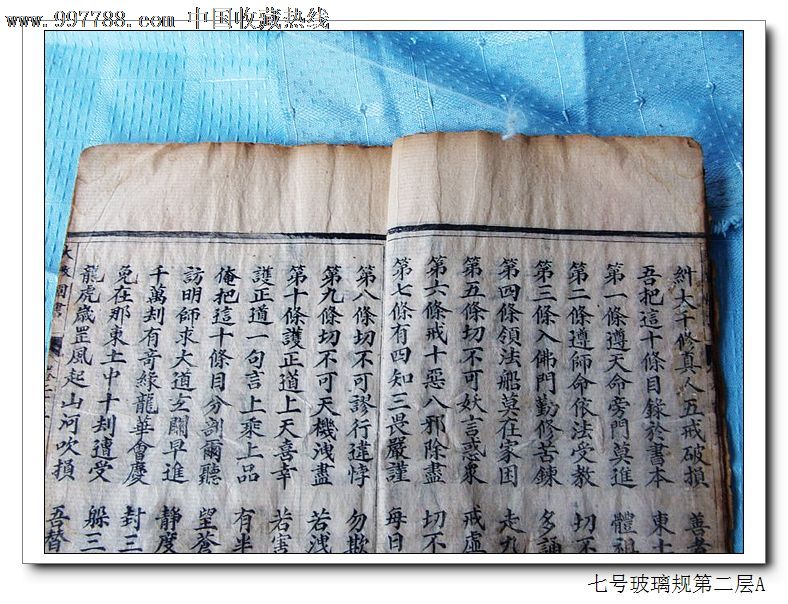 www.997788.com 中国收藏热线
糾大千修真人五戒破損 善
吾把這十條目錄於書本 東土
第一條遵天命旁門莫進 體祖
第二條遵師命依法受教 切不
第三條入佛門勤修苦鍊 多誦
第四條領法船莫在家困 走九
第五條切不可妖言惑衆 戒虛
第六條戒十惡八邪除盡 切不
第七條有四知三畏嚴謹 每日
第八條切不可謬行違悖 勿欺
第九條切不可天機洩盡 若洩
第十條護正道上天喜幸 若害
護正道一句言上乘上品 有半
俺把這十條目分剖爾聽 望蒼
訪明師求大道玄關早進 靜度
千萬刦有竒緣龍華會慶 封三
免在那東土中十刦遭受 躲三
龍虎嵗罡風起山河吹損 吾替
七号玻璃规第二层A